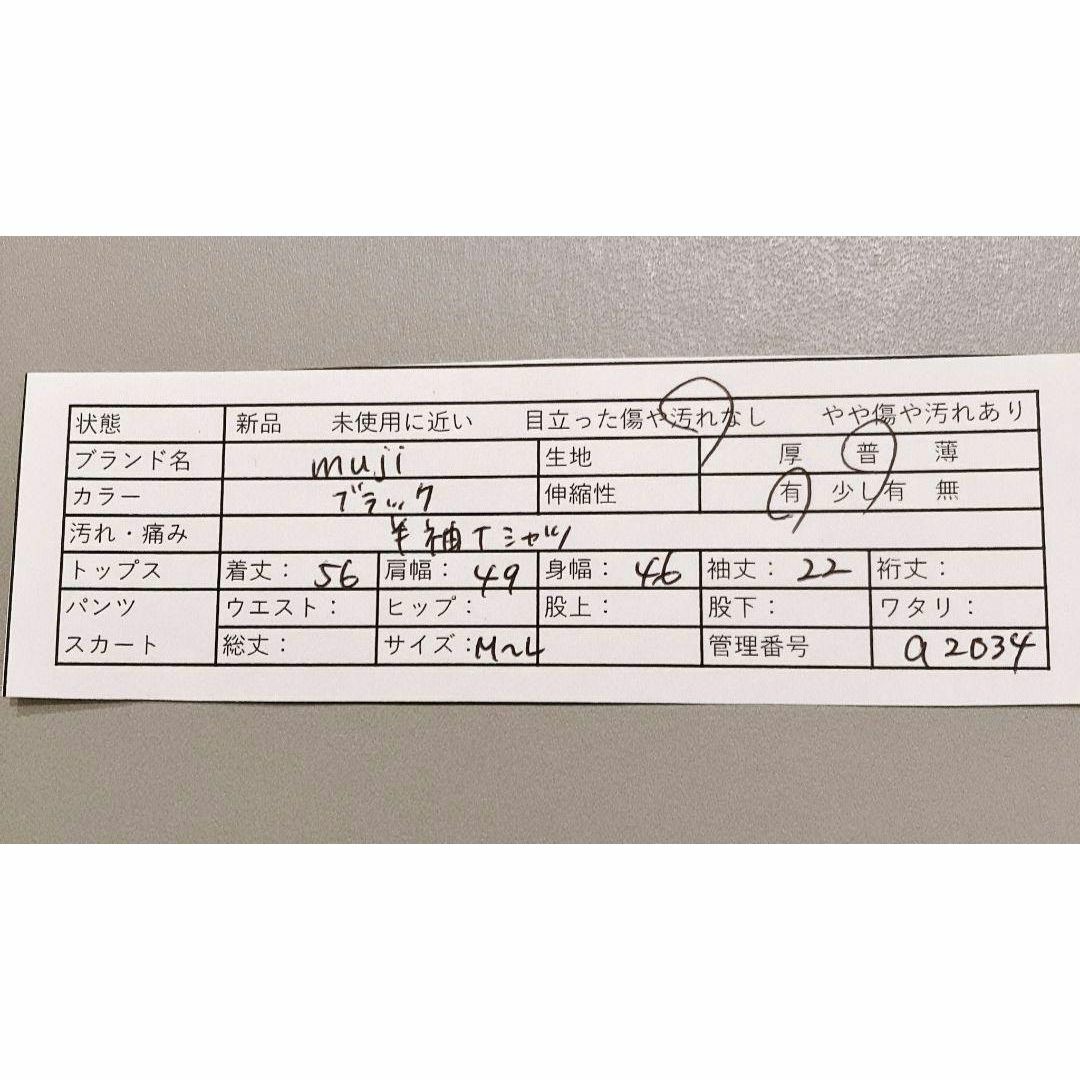 状態 新品 未使用に近い 目立った傷や汚れなし やや傷や汚れあり
ブランド名 muji 生地 厚 普 薄
カラー ブラック 伸縮性 有 少し有 無
汚れ・痛み 半袖Tシャツ
トップス 着丈: 56 肩幅: 49 身幅: 46 袖丈: 22 裄丈:
パンツ ウエスト: ヒップ: 股上: 股下: ワタリ:
スカート 総丈: サイズ:M~L 管理番号 a2034